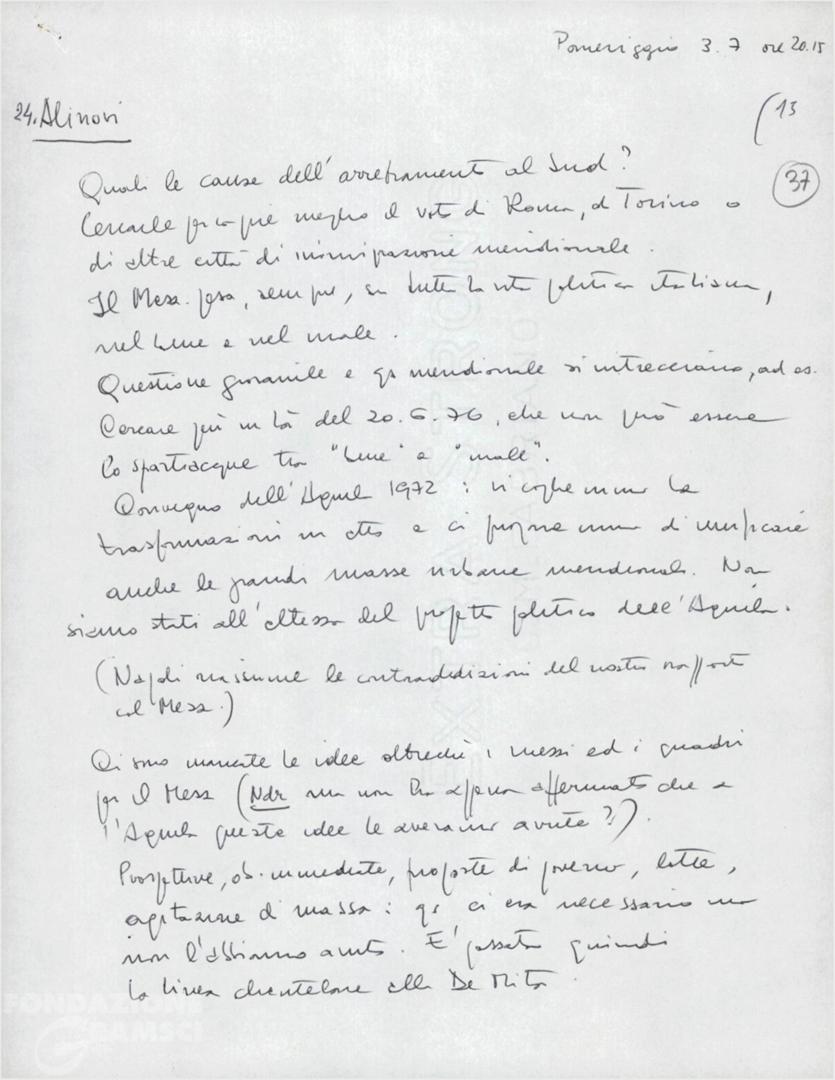 Pomeriggio 3.7 ore 20.15
24. Alinovi
(13
37
Quali le cause dell'arretramento al Sud?
Cercarle per capire meglio il voto di Roma, di Torino o
di altre città di immigrazione meridionale.
Il Mezz. pesa, sempre, su tutta la vita politica italiana,
nel bene e nel male.
Questione giovanile e qs meridionale si intrecciano, ad es.
Cercare più in là del 20.6.76, che non può essere
lo spartiacque tra "bene" e "male".
Convegno dell'Aquila 1972: vi cogliemmo le
trasformazioni in atto e ci proponemmo di unificare
anche le grandi masse urbane meridionali. Non
siamo stati all'altezza del progetto politico dell'Aquila.
(Napoli riassume le contraddizioni del nostro rapporto
col Mezz.)
Ci sono mancate le idee oltreché i mezzi ed i quadri
per il Mezz (Ndr ma non ha appena affermato che a
l'Aquila queste idee le avevamo avute?).
Prospettive, ob. immediate, proposte di governo, lotte,
agitazione di massa: qs ci era necessario ma
non l'abbiamo avuto. E' passata quindi
la linea clientelare alla De Mita.
EXTRA STRONG
FONDAZIONE
GRAMSCI